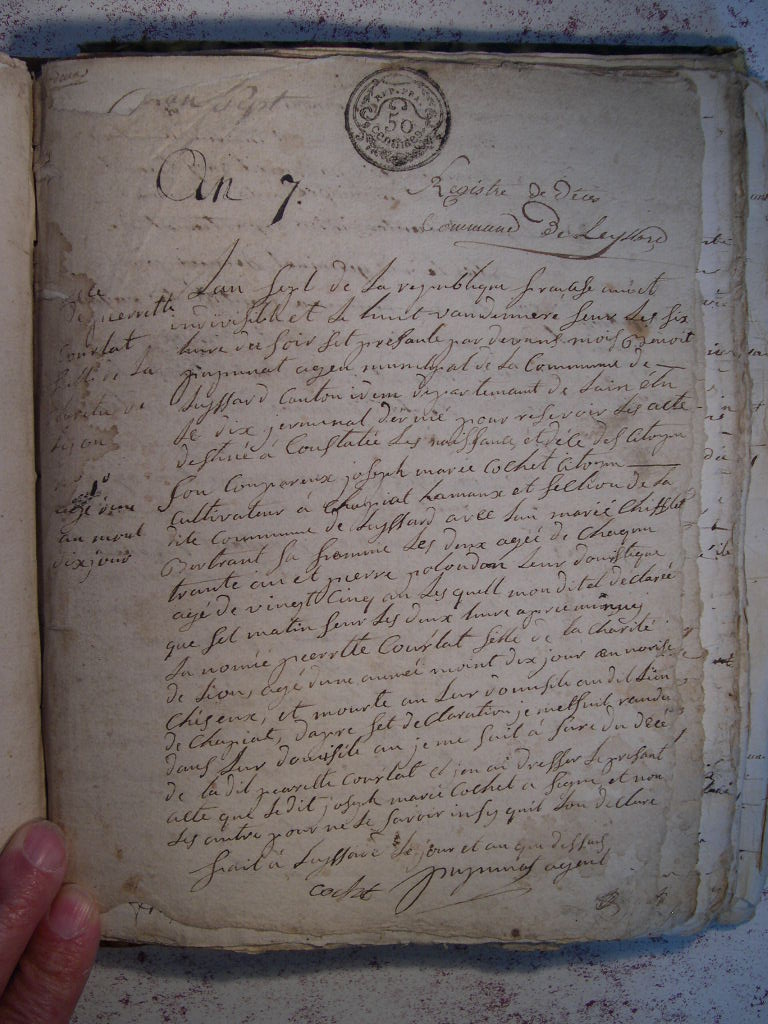 REP. FRA.
50
Centimes
An 7.
Registre de déces
Commune De Leyssard
de pierrette
Courlat
fille de la
Lyon
agé dune
an moint
dix jour
Lan sept de La republique francaise une et
indivisible et Le huit vandemiere seur Les six
hure du soir Set présante par devans mois Benoit
pupunat agen municipal de La Commune de
Leyssard Canton idem departemant de Lain élu
Le dix jerminal dernié pour reservoir Les acte
destiné à Constatée Les naissance et décé des Citoyen
Son Compareux joseph marie Cochet Citoyen
Cultivateur à Chapiat hamaux et section de La
dite Commune de Leyssard avec Lui marie
Bertrant Sa femme Les deux agée de Chaqun
trante an et pierre polondon Leur domestique
agé de vingt Cinq an Les quell mon dital déclarée
que Set matin Seur Les deux hure apré minuy
La nomée pierrette Courlat fille de la Charité
de Lion, agé dune année moint dix jour an norise
Chéseux, et mourte an Leur domisile an dit Lieu
de Chapiat, dapre Set declaration je metsuit randu
dans Leur domisile an je me suit à sure du décé
de La dit pierrette Courlat et jen ai dresser Le présant
acte que Ledit joseph marie Cochet a Signe, et non
Les autre pour ne Le Savoir insy quil Lon declare
frait à Leyssard Le jour et an que dessus
cochet pupunat agent